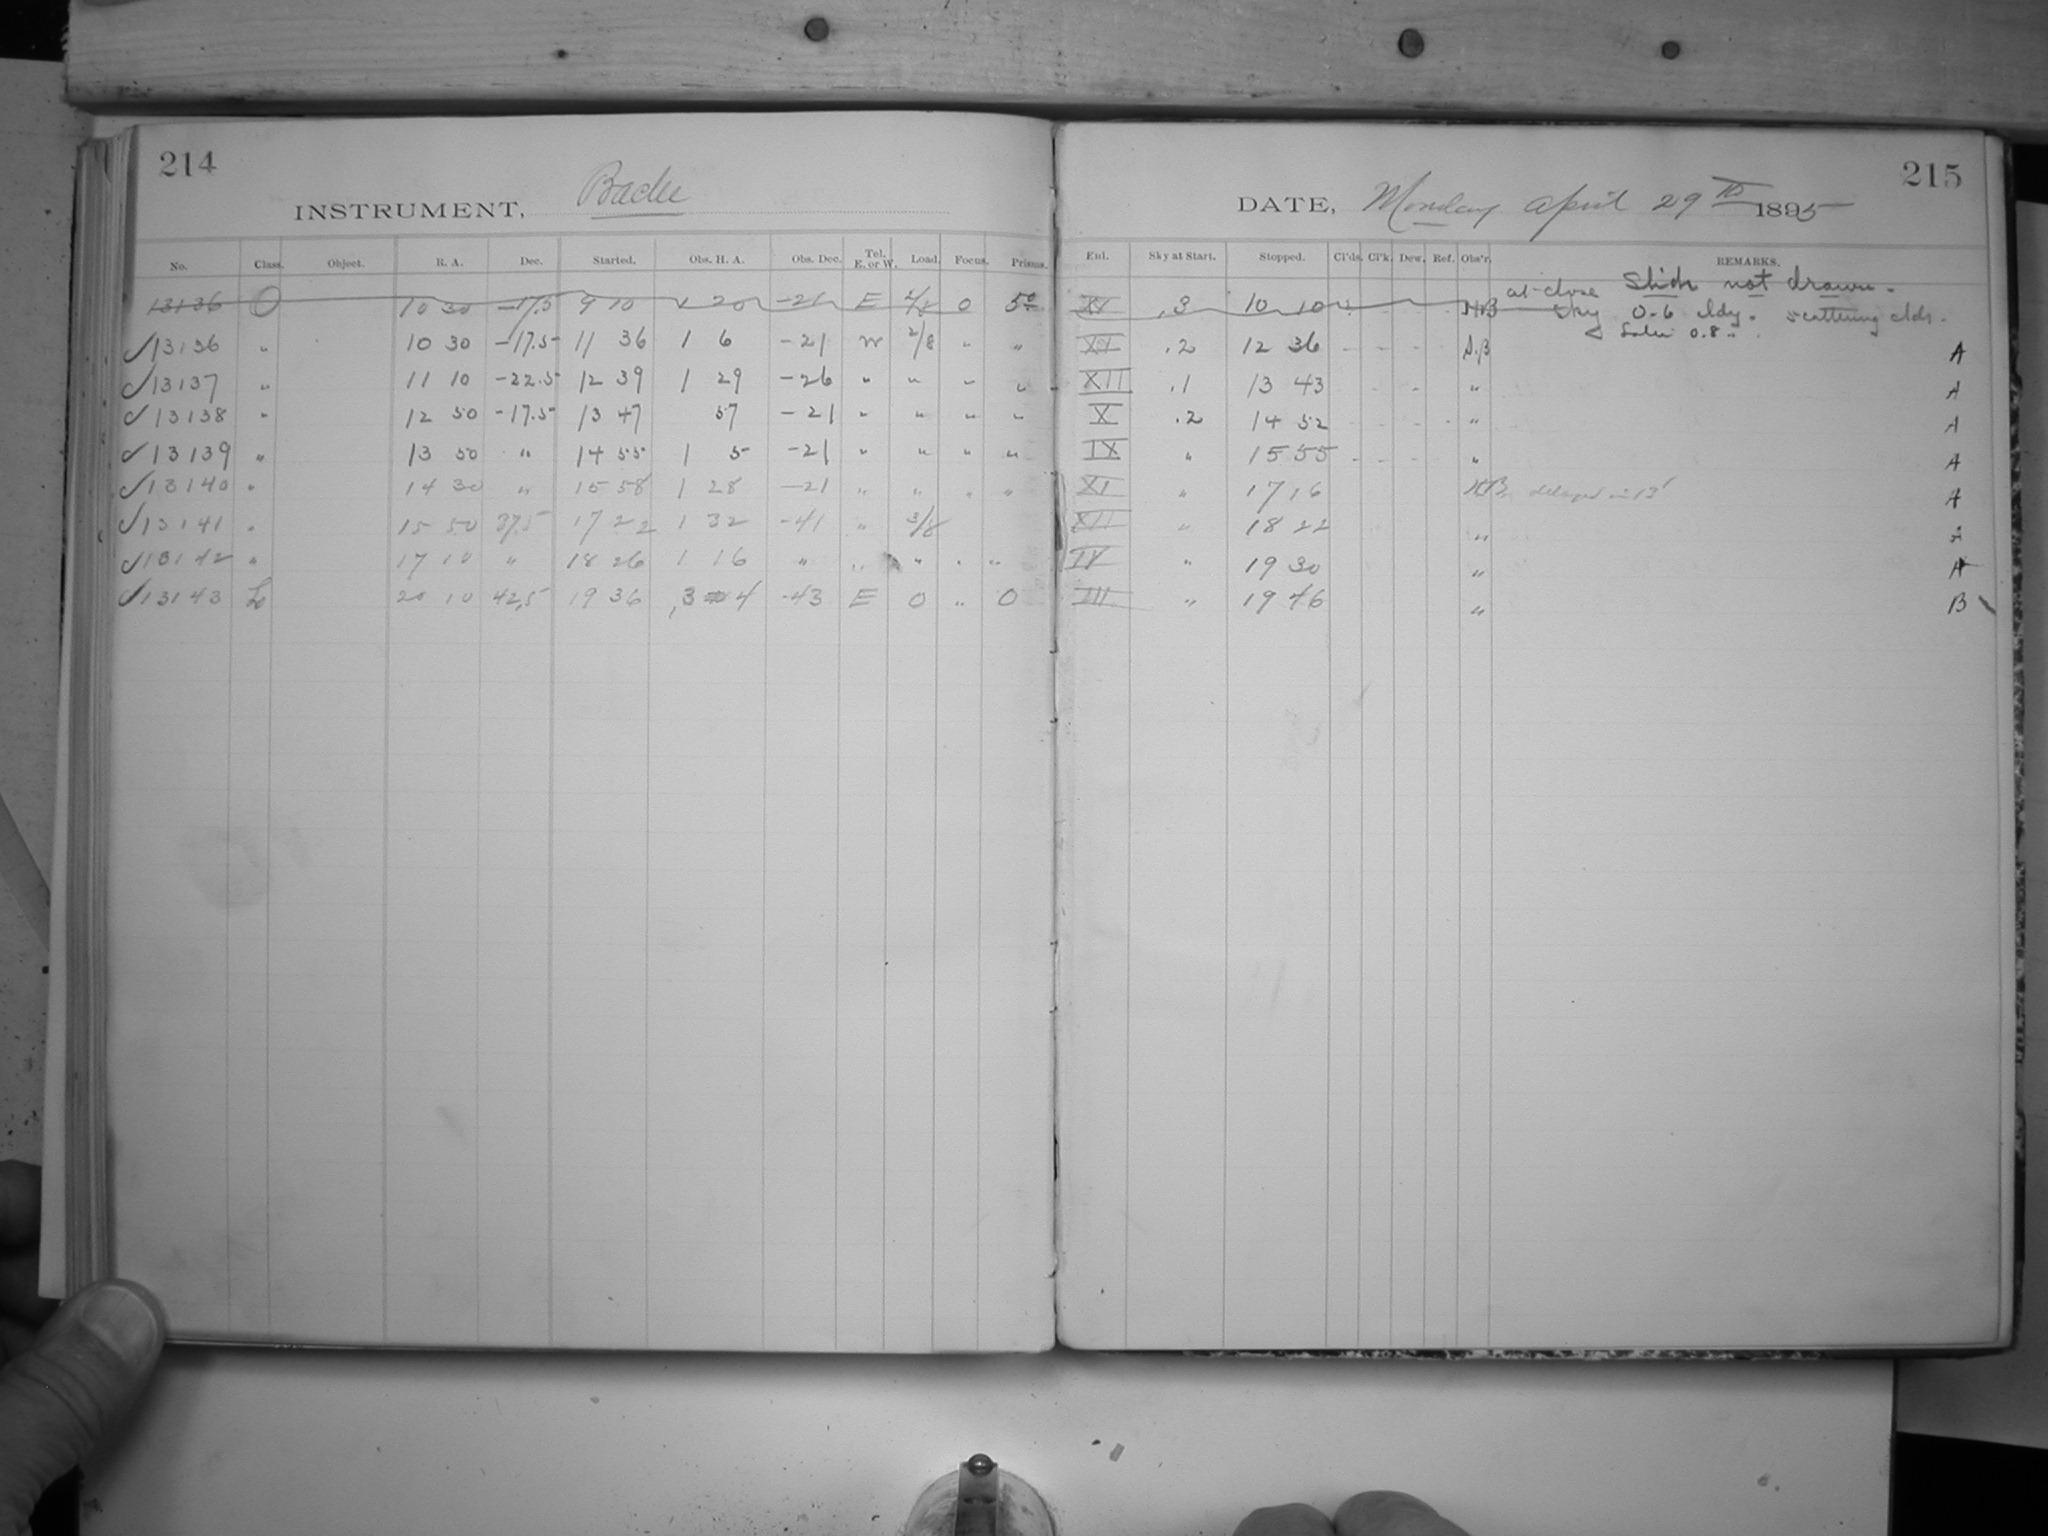 214
INSTRUMENT, Bache
No. Class. Object. R. A. Dec. Started. Obs. H. A. Obs. Dec. Tel. E. or W. Load. Focus. Prisms.
13136 O 10 30 -17.5 9 10 1 20 -21 E 2/8 0 50
✓13136 " 10 30 -17.5 11 36 1 6 -21 W 2/8 " "
✓13137 " 11 10 -22.5 12 39 1 29 -26 " " " "
✓13138 " 12 50 -17.5 13 47 57 -21 " " " "
✓13139 " 13 50 " 14 55 1 5 -21 " " " "
✓13140 " 14 30 " 15 58 1 28 -21 " " " "
✓13141 " 15 50 37.5 17 22 1 32 -41 " 3/8
✓13142 " 17 10 " 18 26 1 16 " " " " "
✓13143 20 10 42.5 19 36 3 4 -43 E 0 " 0
215
DATE, Monday April 29th 1895
Enl. Sky at Start. Stopped. Cl'ds. Cl'k. Dew. Ref. Obs'r. REMARKS.
at close Slide not drawn.
XI .3 10 10 HB Sky 0-6 cldy. scattering clds.
XI .2 12 36 S.B A
XII .1 13 43 " A
X .2 14 52 " A
IX " 15 55 " A
XI " 17 16 HB delayed in 13' A
XII " 18 22 " A
IV " 19 30 " A
III " 19 46 " B